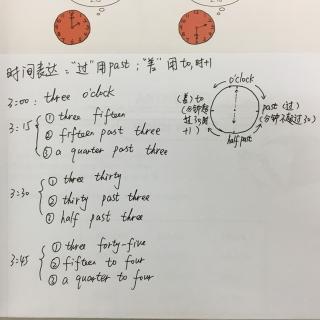 时间表达："过"用past；"差"用to,时+1
3:00: three o'clock
3:15 ① three fifteen
② fifteen past three
③ a quarter past three
3:30 ① three thirty
② thirty past three
③ half past three
3:45 ① three forty-five
② fifteen to four
③ a quarter to four
o'clock
(差) to
(分钟超
过30时
+1)
past (过)
(分钟不超过30)
half past